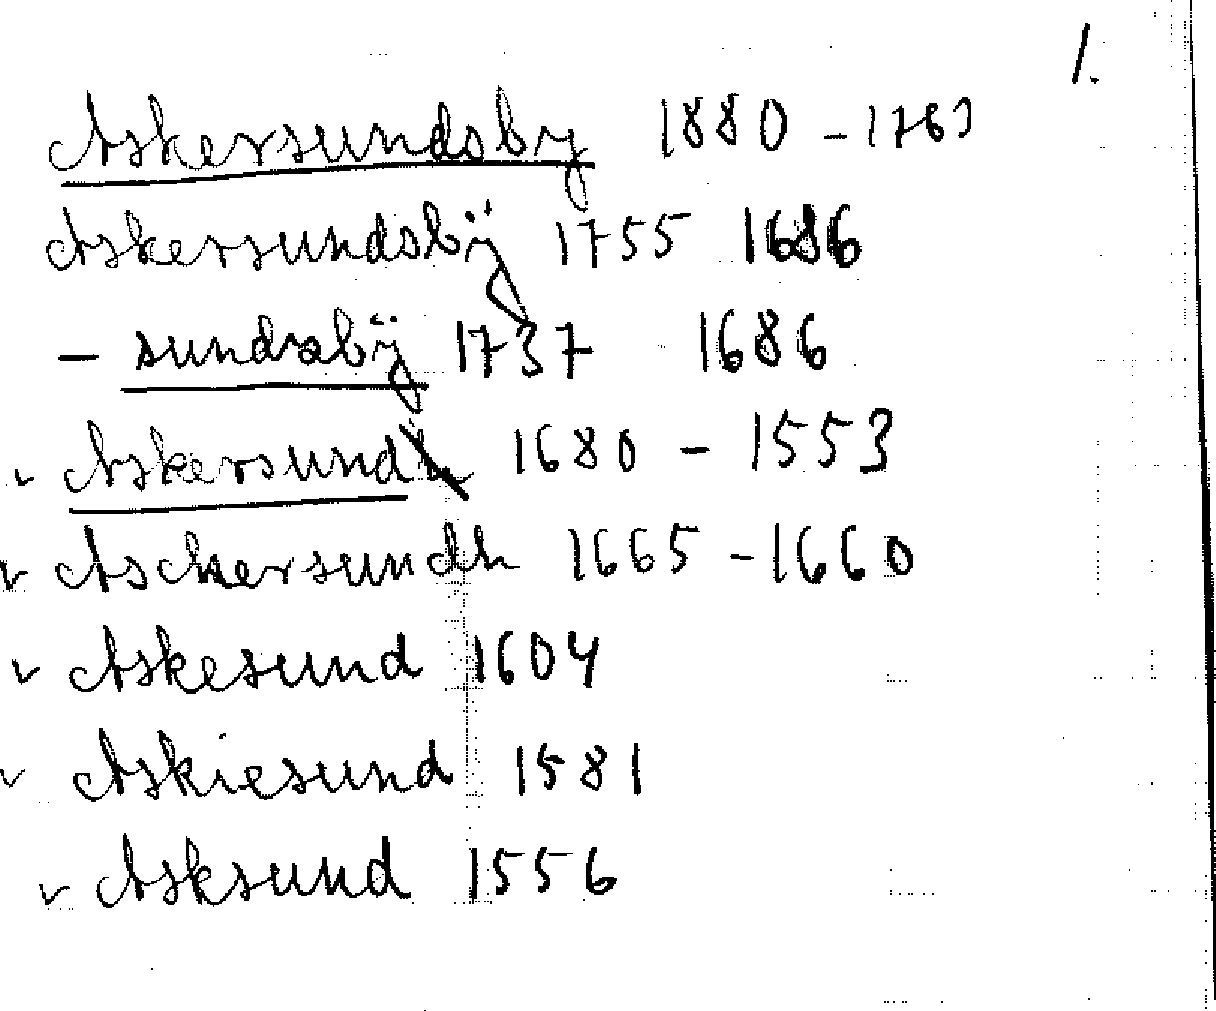 1.
Askersundsby 1880 - 1763
Askersundsbÿ 1755 1686
- sundsbÿ 1737 1686
v Askersund 1680 - 1553
v Aschersundh 1665 - 1660
v Askesund 1604
v Askiesund 1581
v Asksund 1556